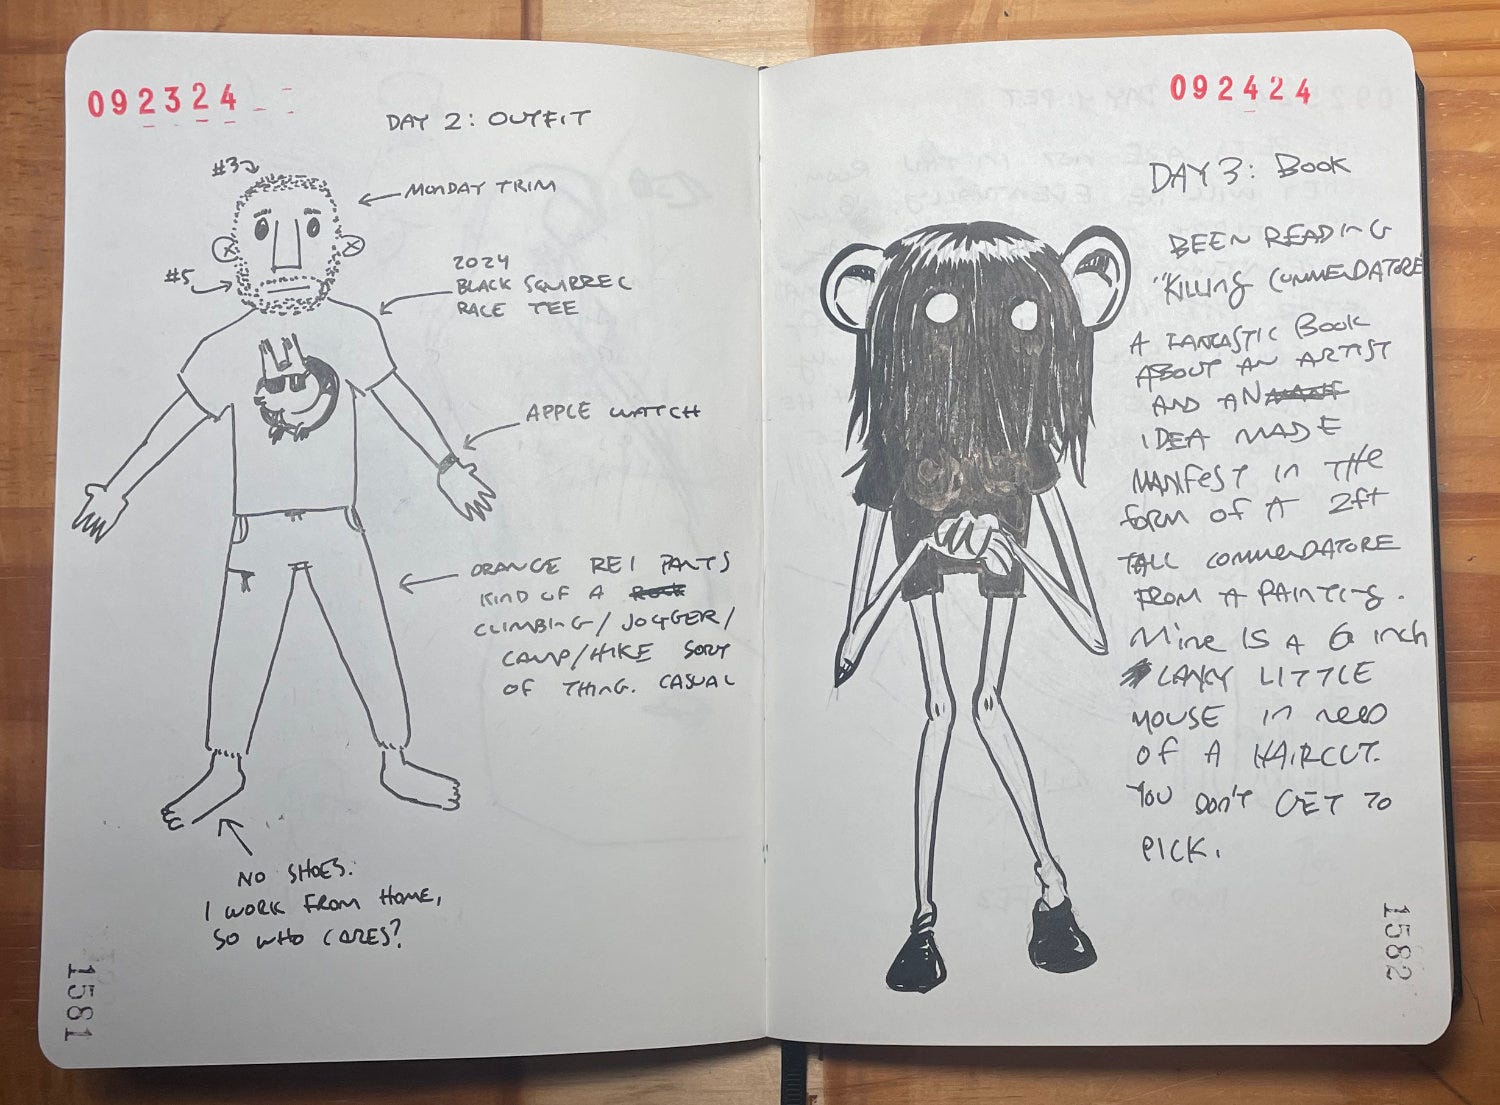 092324
DAY 2: OUTFIT
#3
MONDAY TRIM
#5
2024
BLACK SQUIRREL
RACE TEE
APPLE WATCH
ORANGE REI PANTS
KIND OF A
CLIMBING/JOGGER/
CAMP/HIKE SORT
OF THING. CASUAL
NO SHOES.
I WORK FROM HOME,
SO WHO CARES?
1581
092424
DAY 3: BOOK
BEEN READING
"KILLING COMMENDATORE
A FANTASTIC BOOK
ABOUT AN ARTIST
AND AN
IDEA MADE
MANIFEST IN THE
FORM OF A 2ft
TALL COMMENDATORE
FROM A PAINTING.
MINE IS A 6 INCH
LANKY LITTLE
MOUSE IN NEED
OF A HAIRCUT.
YOU DON'T GET TO
PICK.
1582